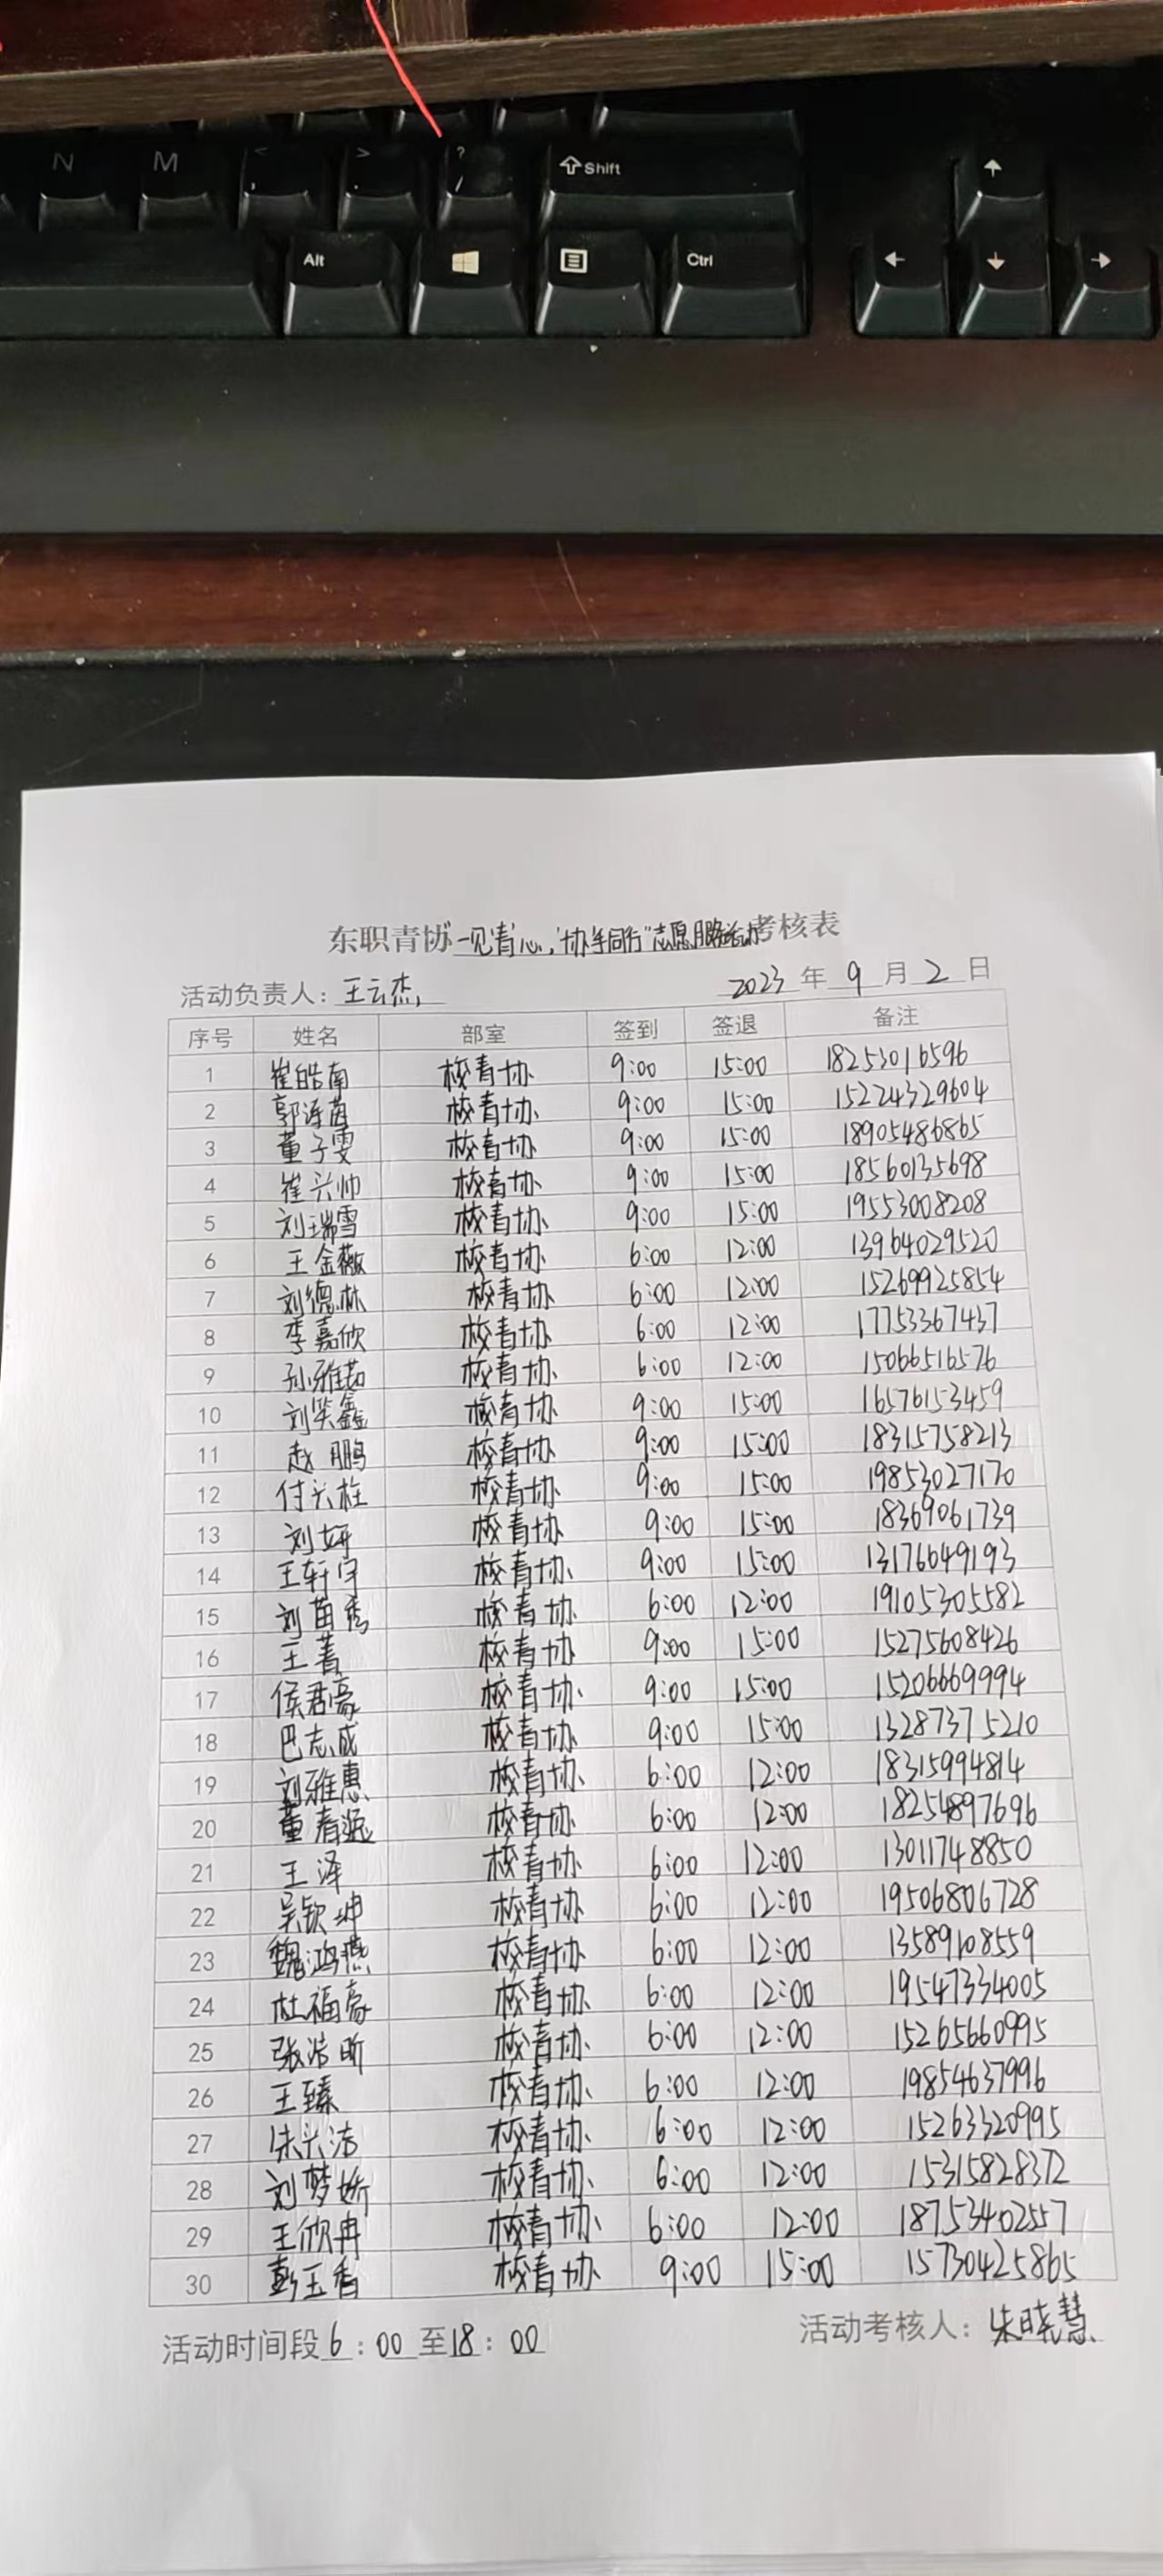 N M < , > . ? / Shift
Alt Ctrl
东职青协"一见'青'心,'协'手同行"志愿服务活动考核表
活动负责人: 王云杰 2023 年 9 月 2 日
序号 姓名 部室 签到 签退 备注
1 崔皓南 校青协 9:00 15:00 18253016596
2 郭泽茵 校青协 9:00 15:00 15224329604
3 董子雯 校青协 9:00 15:00 18905486865
4 崔兴帅 校青协 9:00 15:00 18560135698
5 刘瑞雪 校青协 9:00 15:00 19553008208
6 王金薇 校青协 6:00 12:00 13964029520
7 刘德林 校青协 6:00 12:00 15269925854
8 李嘉欣 校青协 6:00 12:00 17753367437
9 孙雅茹 校青协 6:00 12:00 15066516576
10 刘笑鑫 校青协 9:00 15:00 16576153459
11 赵鹏 校青协 9:00 15:00 18315758213
12 付兴柱 校青协 9:00 15:00 19853027170
13 刘妍 校青协 9:00 15:00 18369061739
14 王轩宇 校青协 9:00 15:00 13176649193
15 刘苗秀 校青协 6:00 12:00 19105305582
16 王菁 校青协 9:00 15:00 15275608426
17 侯君豪 校青协 9:00 15:00 15206669994
18 巴志成 校青协 9:00 15:00 13287375210
19 刘雅惠 校青协 6:00 12:00 18315994814
20 董春 校青协 6:00 12:00 18254897696
21 王泽 校青协 6:00 12:00 13011748850
22 吴钦坤 校青协 6:00 12:00 19506806728
23 魏鸿燕 校青协 6:00 12:00 13589108559
24 杜福豪 校青协 6:00 12:00 19547334005
25 张浩昕 校青协 6:00 12:00 15265660995
26 王臻 校青协 6:00 12:00 19854637996
27 朱兴洁 校青协 6:00 12:00 15263320995
28 刘梦娇 校青协 6:00 12:00 15315828372
29 王欣冉 校青协 6:00 12:00 18753402557
30 彭玉香 校青协 9:00 15:00 15730425865
活动时间段 6 : 00 至 18 : 00 活动考核人: 朱晓慧